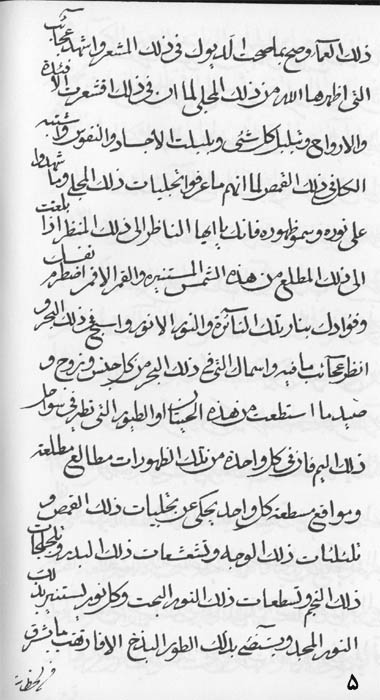 ذلك العماء وصح بما صحت الديوك فى ذلك المشعر واشهد عجائب
التى اظهرها الله من ذلك المجلى لما ان فى ذلك اقشعرت الافئدة
والارواح وتبلبل كلشئ وبلبلت الاجساد والنفوس واشتبه
الكل فى ذلك القمص لما انهم ما عرفوا تجليات ذلك المجلى وما شهدوا
على نوره وسمو ظهوره فانك يا ايها الناظر الى ذلك المنظر اذا بلغت
الى ذلك المطلع من هذه الشمس المستنيره والقمر الاقمر اضطرم نفسك
وفؤادك بنار تلك النائرة والنور الانور واسبح فى ذلك البحر و
انظر عجائب ما فيه واسماك التى فى ذلك البحر من كل جنس وزوج و
صيد ما استطعت من هذه الحيتان او الطيور التى تطير فى سواحل
ذلك اليم فان فى كل واحدة من تلك الظهورات مطالع مطلعة
ومواقع مسطعة كل واحد يحكى عن تجليات ذلك القمص و
تلئلئات ذلك الوجه وتشعشعات ذلك البدر وتلجلجات
ذلك النجم وتسطعات ذلك النور البحت وكل نور يستنير بذلك
النور المجلل ويستضئ بذلك الطور البذخ الافار تهب ما يشرق
فى لحظة
۵